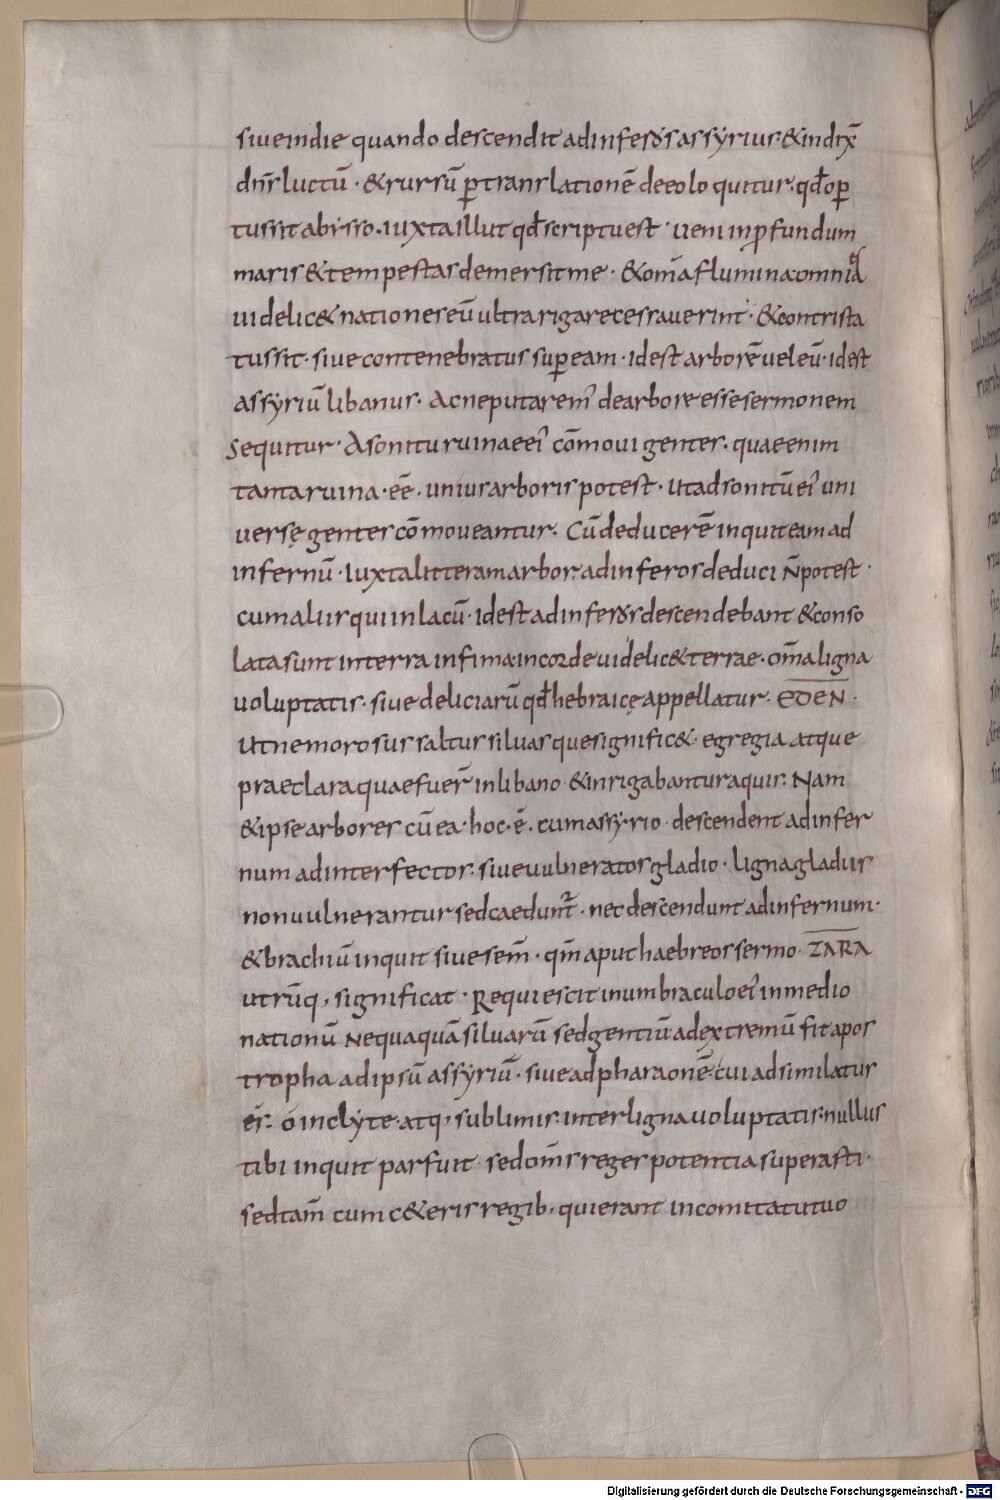 siue in die quando descendit ad inferos assyrius· & indix̄
dn̄s luctū· & rursū ꝑ translationē de eo loquitur· qđ oꝑ
tussit abisso· iuxta illut qđ scriptu est· ueni in ꝓfundum
maris & tempestas demersit me· & om̄a flumina omnia
uidelic& nationes eū ultra rigare cessauerint· & contrista
tus sit· siue contenebratus suꝑ eam· id est arborē uel eū· id est
assyriū libanus· Ac ne putarem̄ de arbore esse sermonem
sequitur· A sonitu ruinae ei᾽ cōmoui gentes· quae enim
tanta ruina· eē· unius arboris potest· ut ad sonitū ei᾽ uni
uersę gentes cōmoueantur· Cū deducerē inquit eam ad
infernū· iuxta litteram arbor ad inferos deduci n̄ potest·
cum aliis qui in lacū· id est ad inferos descendebant & conso
lata sunt in terra infima in corde uidelic& terrae· om̄a ligna
uoluptatis· siue deliciarū qđ hebraicę appellatur· EDEN·
ut nemorosus saltus siluasque signific& egregia atque
praeclara quae fuer̄ in libano & inrigabantur aquis· Nam
& ipse arbores cū ea· hoc· ē· cum assyrio descendent ad infer
num ad interfectos· siue uulneratos gladio· ligna gladiis
non uulnerantur sed caedunt᷑· nec descendunt ad infernum·
& brachiū inquit siue sem̄· qm̄ aput haebreos sermo· ZARA
utrūq, significat· Requiescit in umbraculo ei᾽ in medio
nationū Nequaquā siluarū sed gentiū ad extremū fit apos
tropha ad ipsū assyriū· siue ad pharaonē· cui adsimilatus
es̄· ō inclyte· atq, sublimis· inter ligna uoluptatis· nullus
tibi inquit par fuit· sed om̄s reges potentia superasti·
sed tam̄ cum c&eris regib, qui erant in comitatu tuo